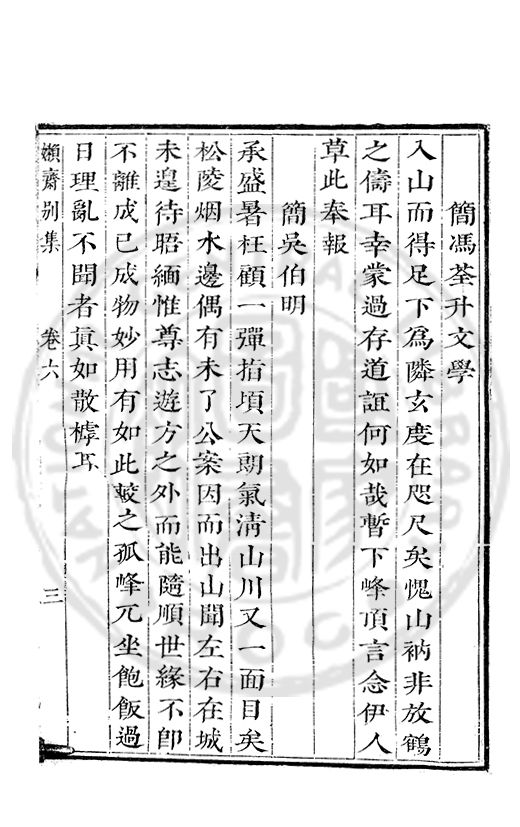 簡馮荃升文學
入山而得足下爲隣玄度在咫尺矣愧山衲非放鶴
之儔耳幸蒙過存道誼何如哉暫下峰頂言念伊人
草此奉報
簡吳伯明
承盛暑枉顧一彈指頃天朗氣清山川又一面目矣
松陵烟水邊偶有未了公案因而出山聞左右在城
未遑待晤緬惟尊志遊方之外而能隨順世緣不卽
不離成已成物妙用有如此較之孤峰兀坐飽飯過
日理亂不聞者眞如散樗耳
嬾齋別集
卷六
三